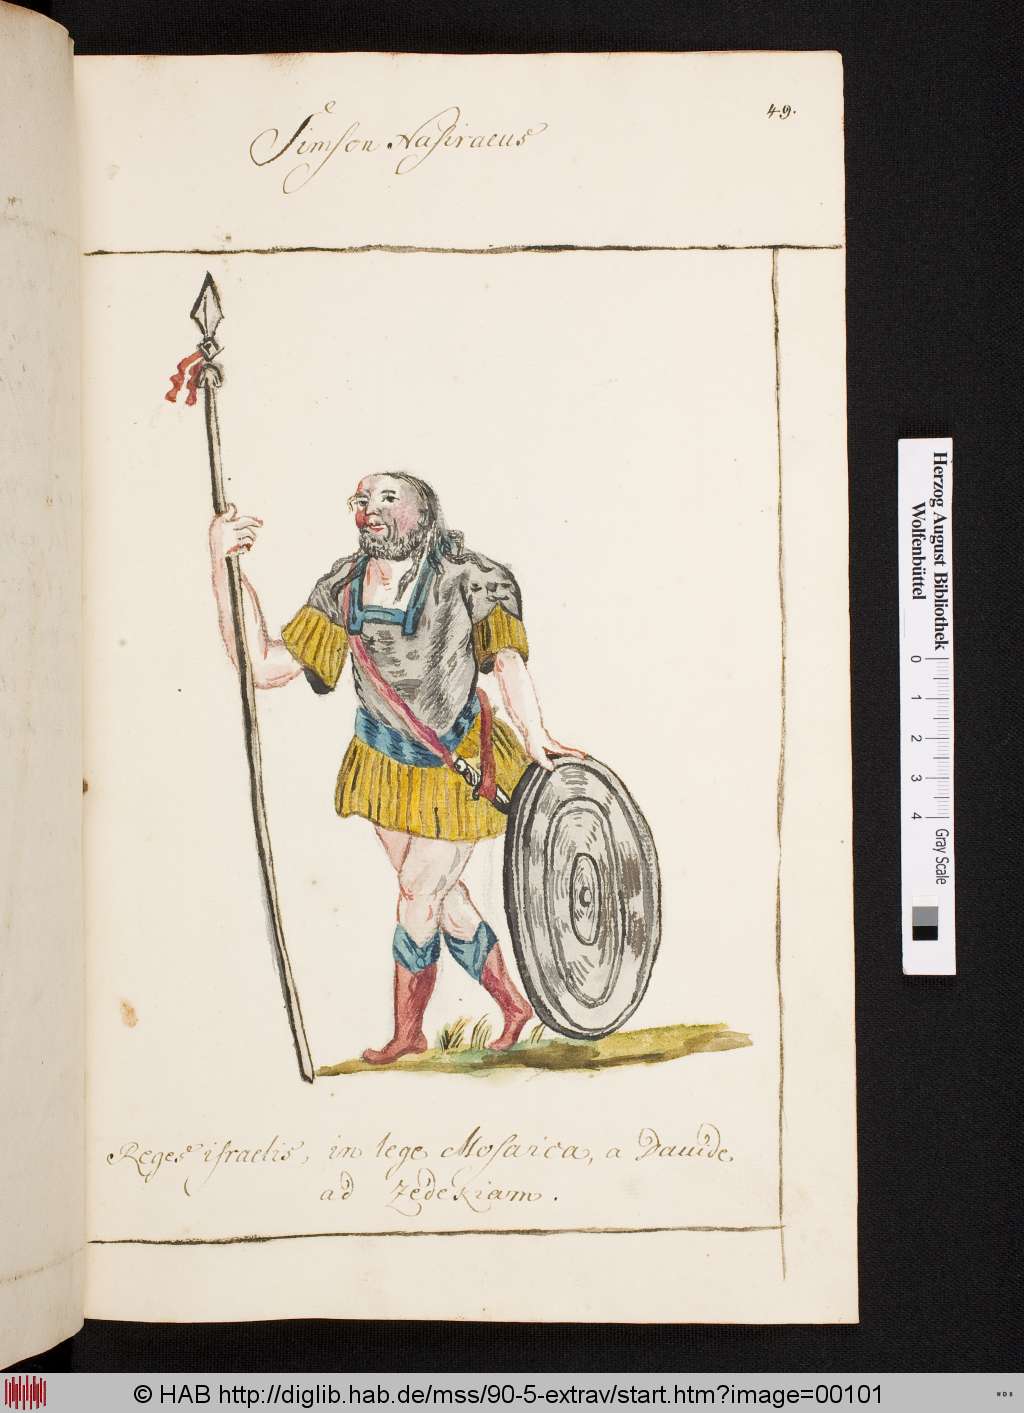 49.
Simson Nasiraeus
Reges israelis, in lege Mosaica, a Dauide,
ad Zedekiam.
Herzog August Bibliothek
Wolfenbüttel
0 1 2 3 4
Gray Scale
© HAB http://diglib.hab.de/mss/90-5-extrav/start.htm?image=00101